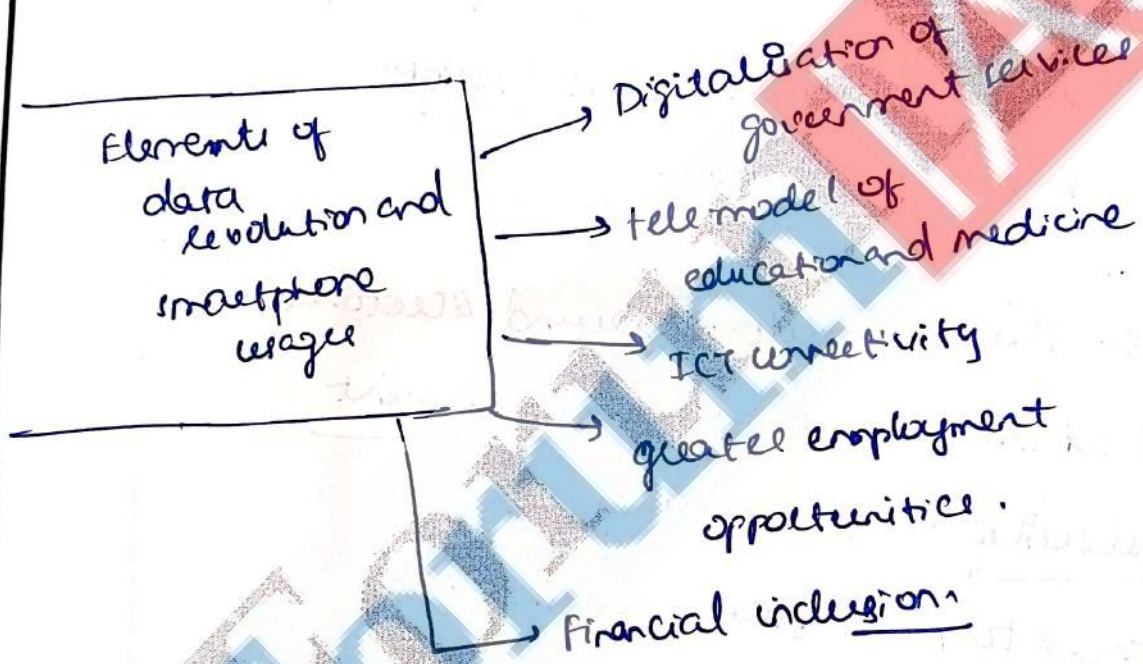 Elements of
data
revolution and
smartphone
usage
Digitalisation of
government services
tele model of
education and medicine
ICT connectivity
greater employment
opportunities.
Financial inclusion.
Forum IA